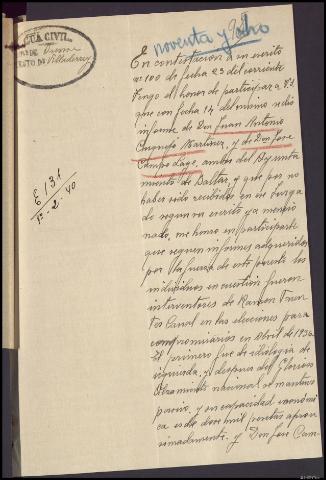 CIVIL
PUESTO DE Villaderrey
98
noventa y ocho
E 131
12-2-40
En contestación a su escrito
nº 100 de fecha 23 del corriente
Tengo el honor de participar a V.S.
que con fecha 14 del mismo se dio
informe de Don Juan Antonio
Martinez, y de Don Jose
Campo Lage, ambos del Ayunta
miento de Baltar, y que por no
haber sido recibidos en ese Juzga
do segun su escrito ya mencio
nado, me honro en participarle
que segun informes adquiridos
por la fuerza de este puesto los
individuos en cuestion fueron
interventores de Ramon Fuen
tes Canal en las elecciones para
compromisarios en Abril de 1936
El primero fue de idiologia de
izquierda, y despues del Glorioso
Alzamiento nacional se mantuvo
pasivo, y su capacidad económi
ca es de doce mil pesetas aprox
simadamente. y Don Jose Cam-